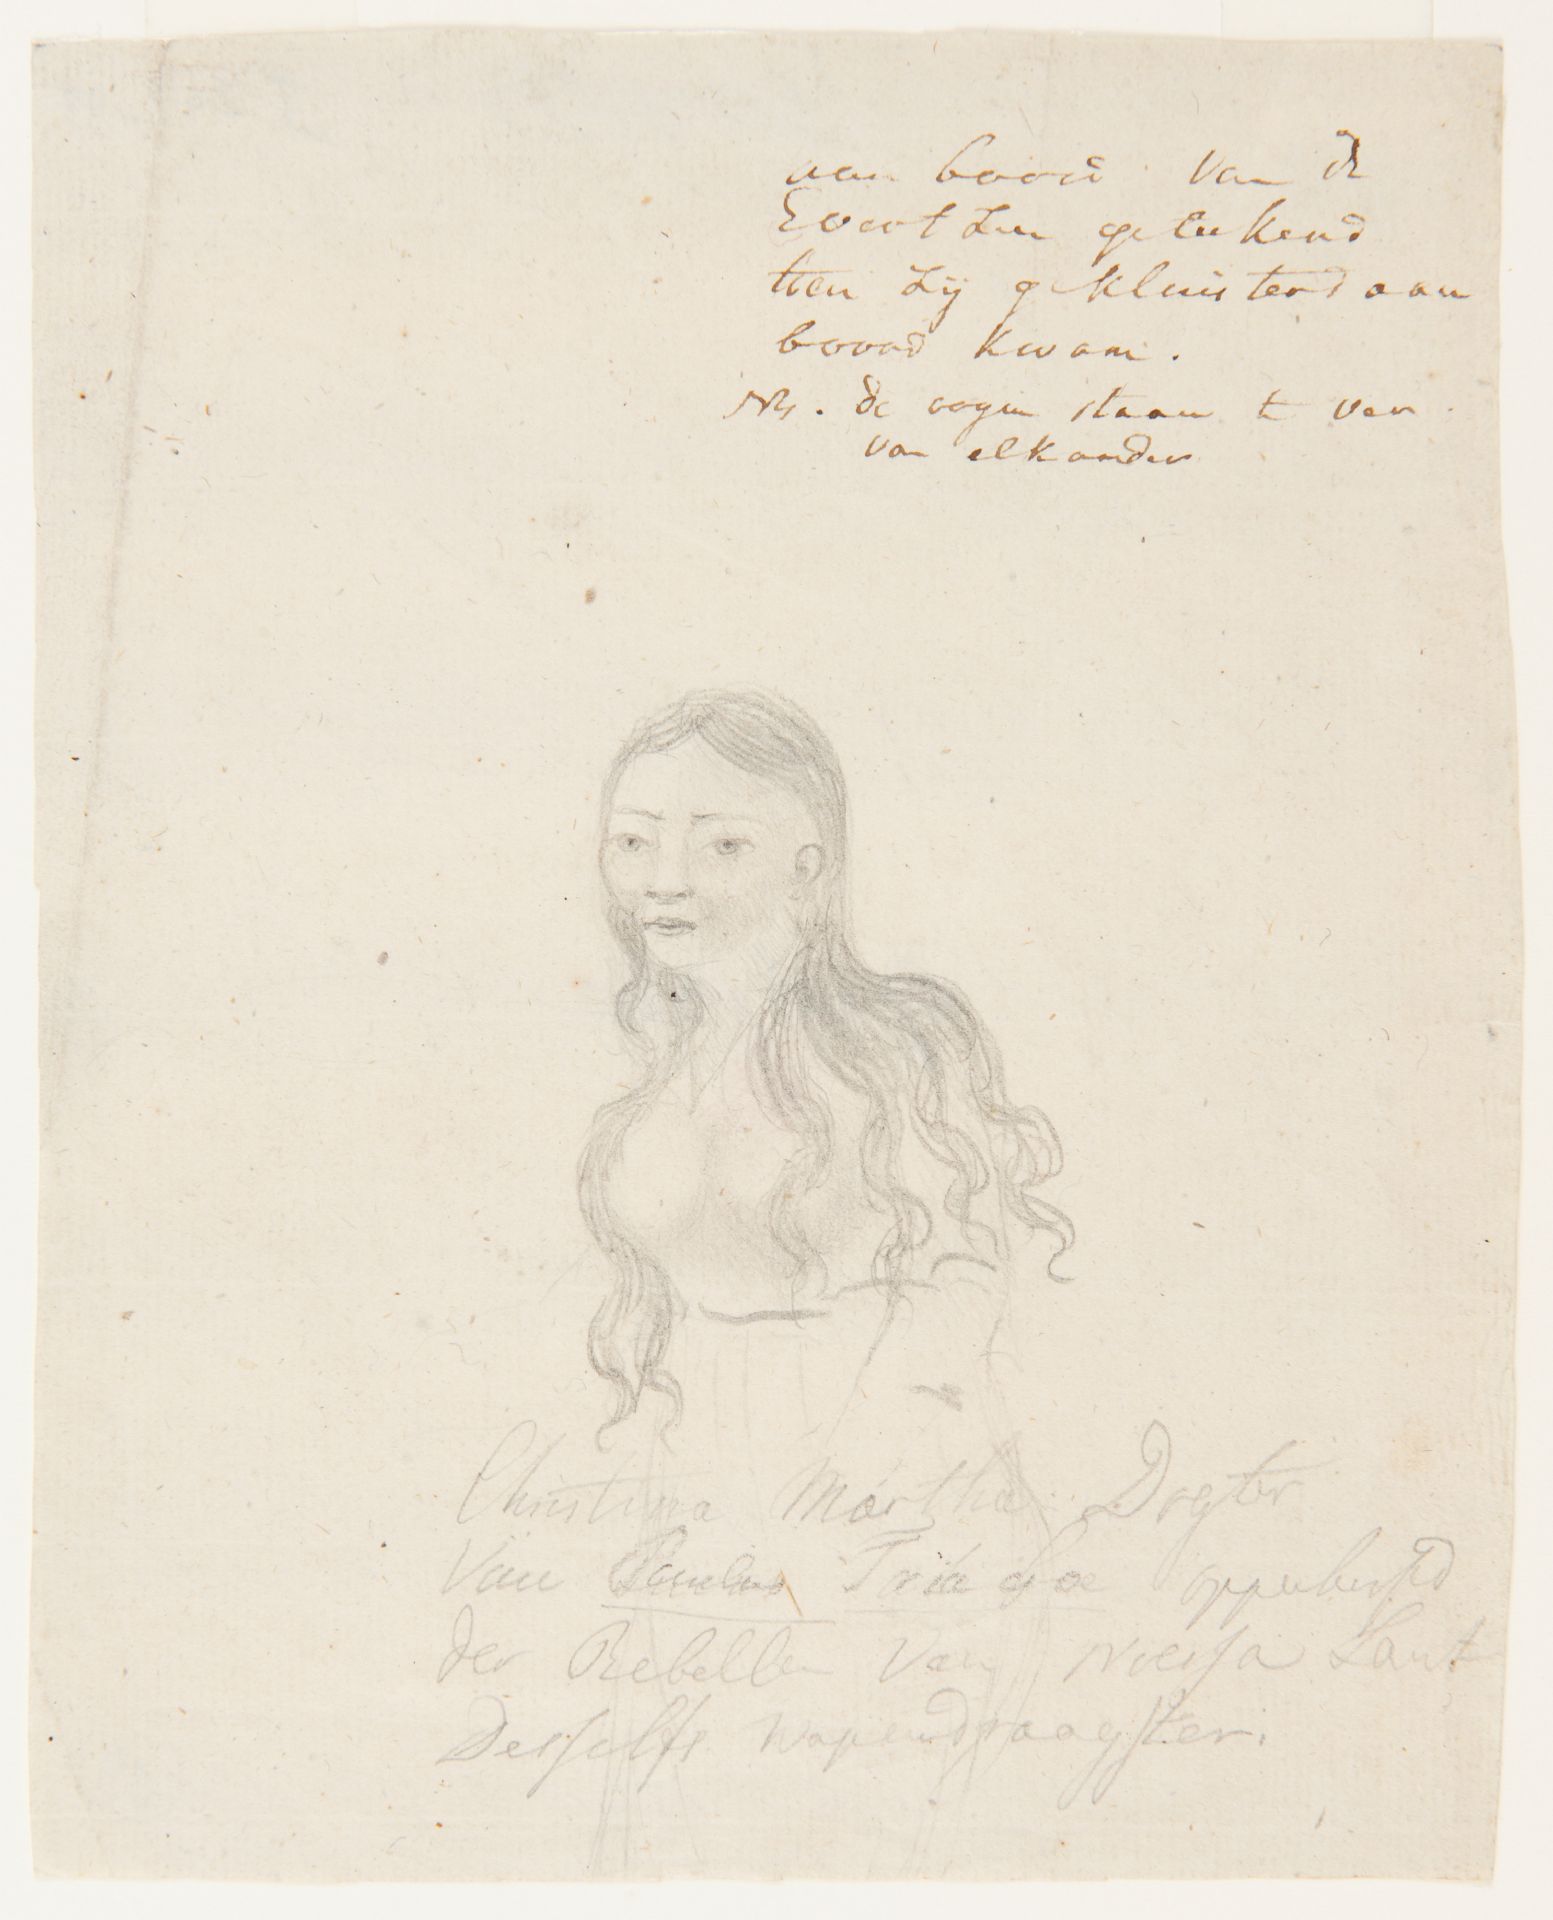 aan boord van de
Evertzen geteekend
toen zij gekluisterd aan
boord kwam.
NB. de oogen staan te ver
van elkander
Christina Martha Dogter
Van Paulus Tria goe opperhoofd
der Rebellen Van Noessa Laut
Desselfs wapendraagster.